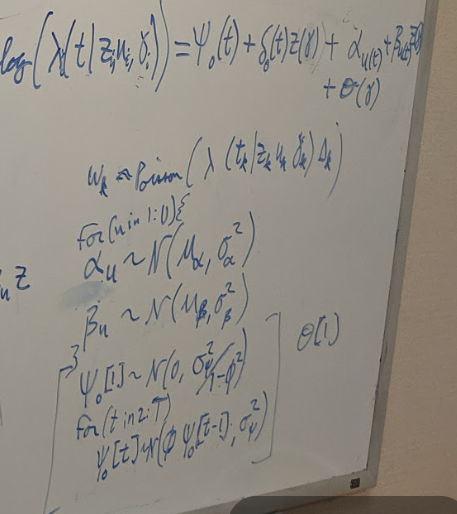 log(λ(t|z_i, u_i, γ_i)) = ψ_0(t) + δ_0(t)z(γ) + α_u(t) + β_u(t)z(γ)
+ Θ(γ)
w_k ~ Poisson(λ(t_k|z_k u_k γ_k) Δ_k)
for(u in 1:U){
α_u ~ N(μ_α, σ_α^2)
u z
β_u ~ N(μ_β, σ_β^2)
}
ψ_0[1] ~ N(0, σ_ψ^2/1-φ^2)
Θ[1]
for(t in 2:T)
ψ_0[t] ~ N(φ ψ_0[t-1], σ_ψ^2)